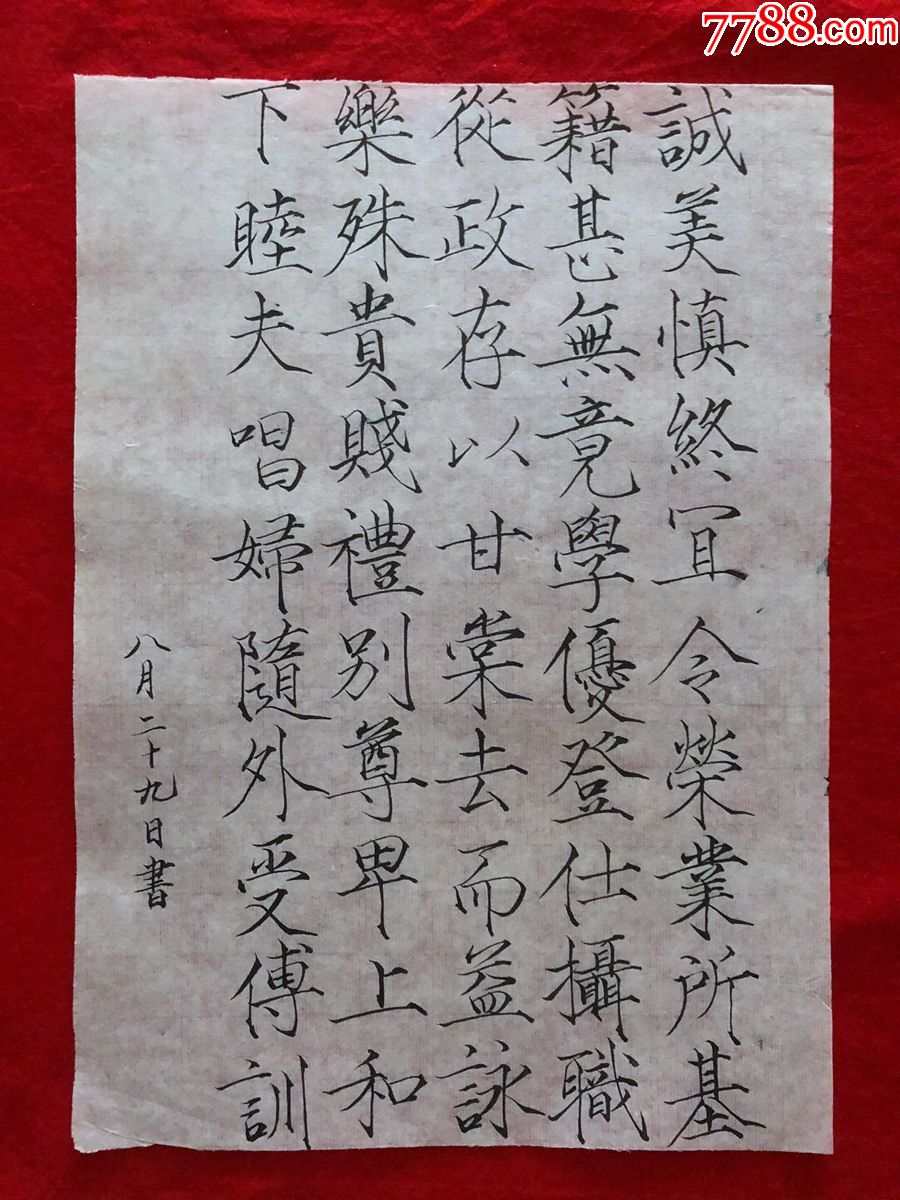 7788.com
誠美慎終宜令榮業所基
籍甚無竟學優登仕攝職
從政存以甘棠去而益詠
樂殊貴賤禮別尊卑上和
下睦夫唱婦隨外受傅訓
八月二十九日書